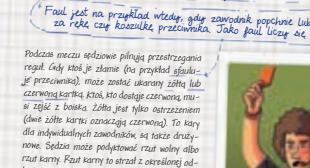 Faul jest na przykład wtedy, gdy zawodnik popchnie lub
za rękę czy koszulkę przeciwnika. Jako faul liczy się
Podczas meczu sędziowie pilnują przestrzegania
reguł. Gdy ktoś je złamie (na przykład sfaulu-
je przeciwnika), może zostać ukarany żółtą lub
czerwoną kartką. Ktoś, kto dostaje czerwoną, mu-
si zejść z boiska. Żółta jest tylko ostrzeżeniem
(dwie żółte kartki oznaczają czerwoną). To kary
dla indywidualnych zawodników, są także druży-
nowe. Sędzia może podyktować rzut wolny albo
rzut karny. Rzut karny to strzał z określonej od-